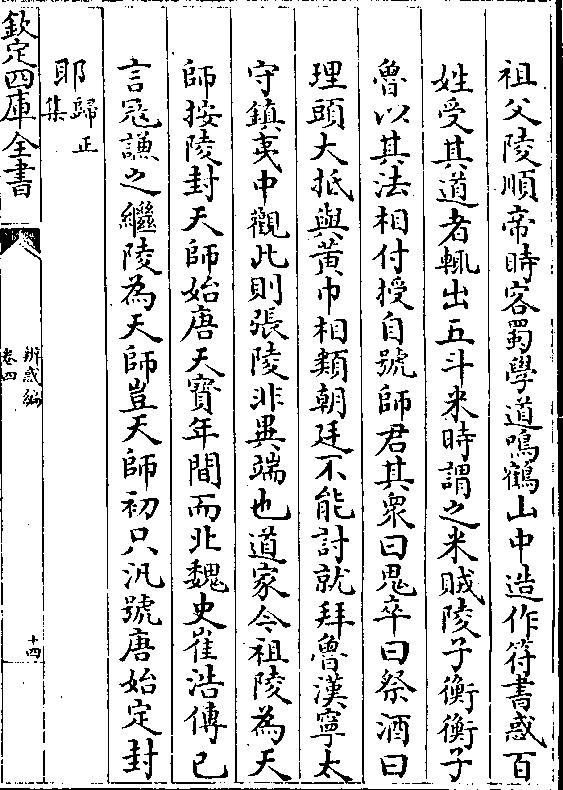 祖父陵順帝時客蜀學道鳴鶴山中造作符書惑百
姓受其道者輒出五斗米時謂之米賊陵子衡衡子
魯以其法相付授自號師君其衆曰鬼卒曰祭酒曰
理頭大抵與黃巾相類朝廷不能討就拜魯漢寧太
守鎮夷中觀此則張陵非異端也道家今祖陵為天
師按陵封天師始唐天寶年間而北魏史崔浩傳已
言冦謙之繼陵為天師豈天師初只汎號唐始定封
耶
歸正
集
欽定四庫全書
辨惑編
卷四
十四